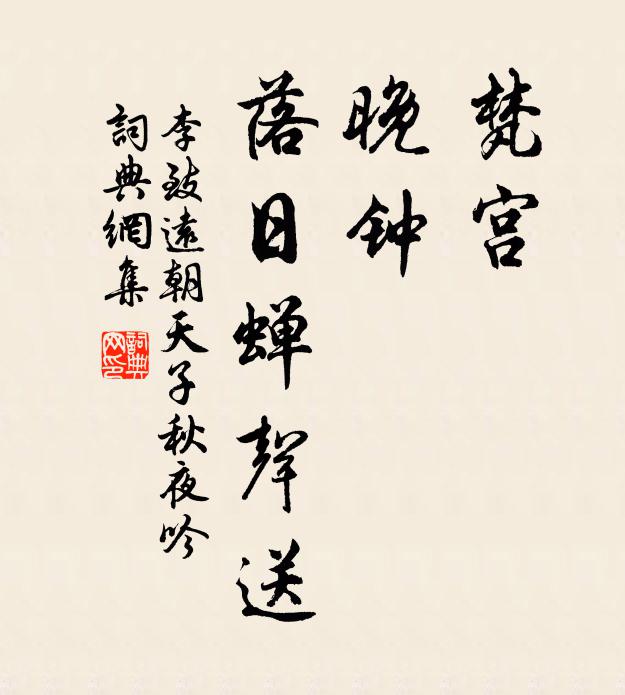 梵宫
晚钟
落日蝉聲送
李致遠朝天子秋夜吟
詞典網集
詞典
网印